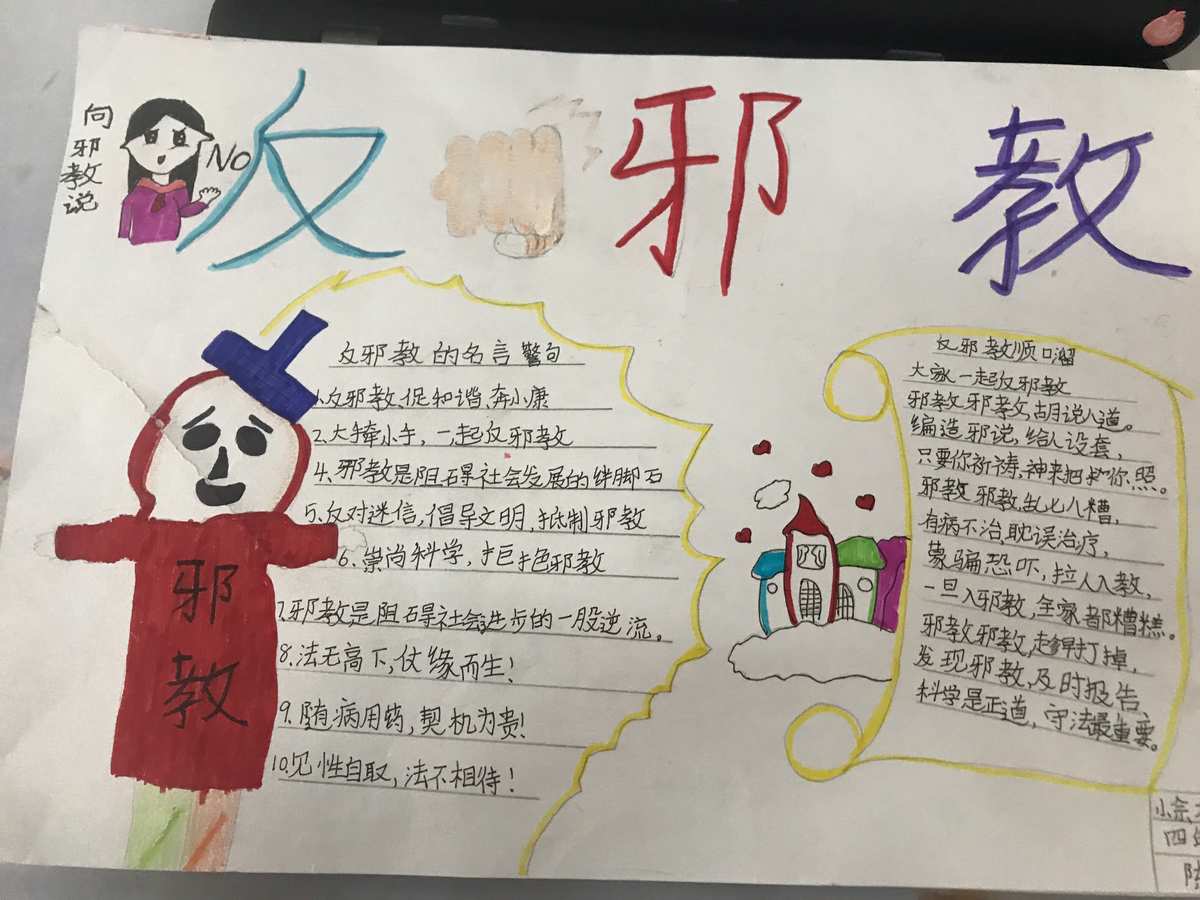 向邪教说
NO
反邪教
反邪教的名言警句
1.反邪教、促和谐、奔小康
2.大手牵小手,一起反邪教
4.邪教是阻碍社会发展的绊脚石
5.反对迷信,倡导文明,抵制邪教
6.崇尚科学,拒绝邪教
7.邪教是阻碍社会进步的一股逆流。
8.法无高下,仗缘而生!
9.随病用药,契机为贵!
10.见性自取,法不相待!
邪
教
反邪教顺口溜
大家一起反邪教
邪教邪教,胡说八道。
编造邪说,给人设套,
只要你祈祷,神来把你照。
邪教邪教乱七八糟,
有病不治,耽误治疗,
蒙骗恐吓,拉人入教,
一旦入邪教,全家都糟糕。
邪教邪教,趁早打掉,
发现邪教,及时报告、
科学是正道,守法最重要。
小宗
四
陆